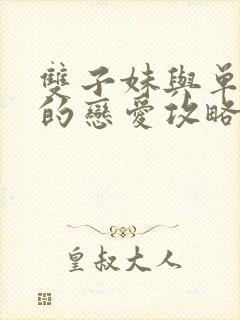 雙子妹與單
的戀愛攻略
皇叔大人